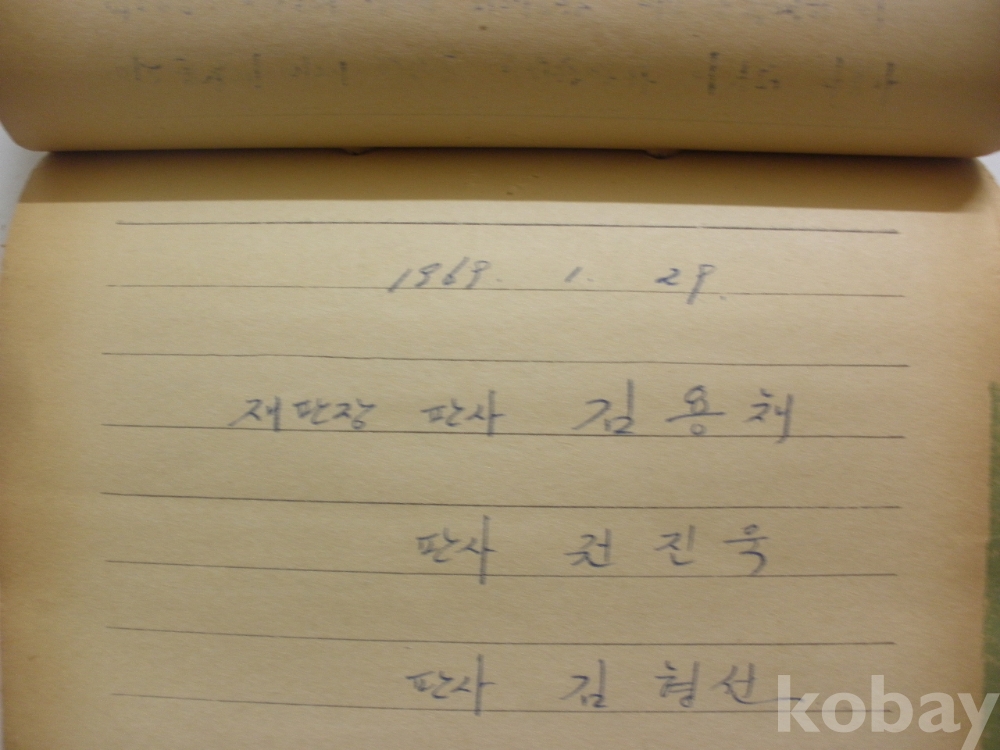 1969. 1. 29.
재판장 판사 김용채
판사 권진욱
판사 김형선
kobay